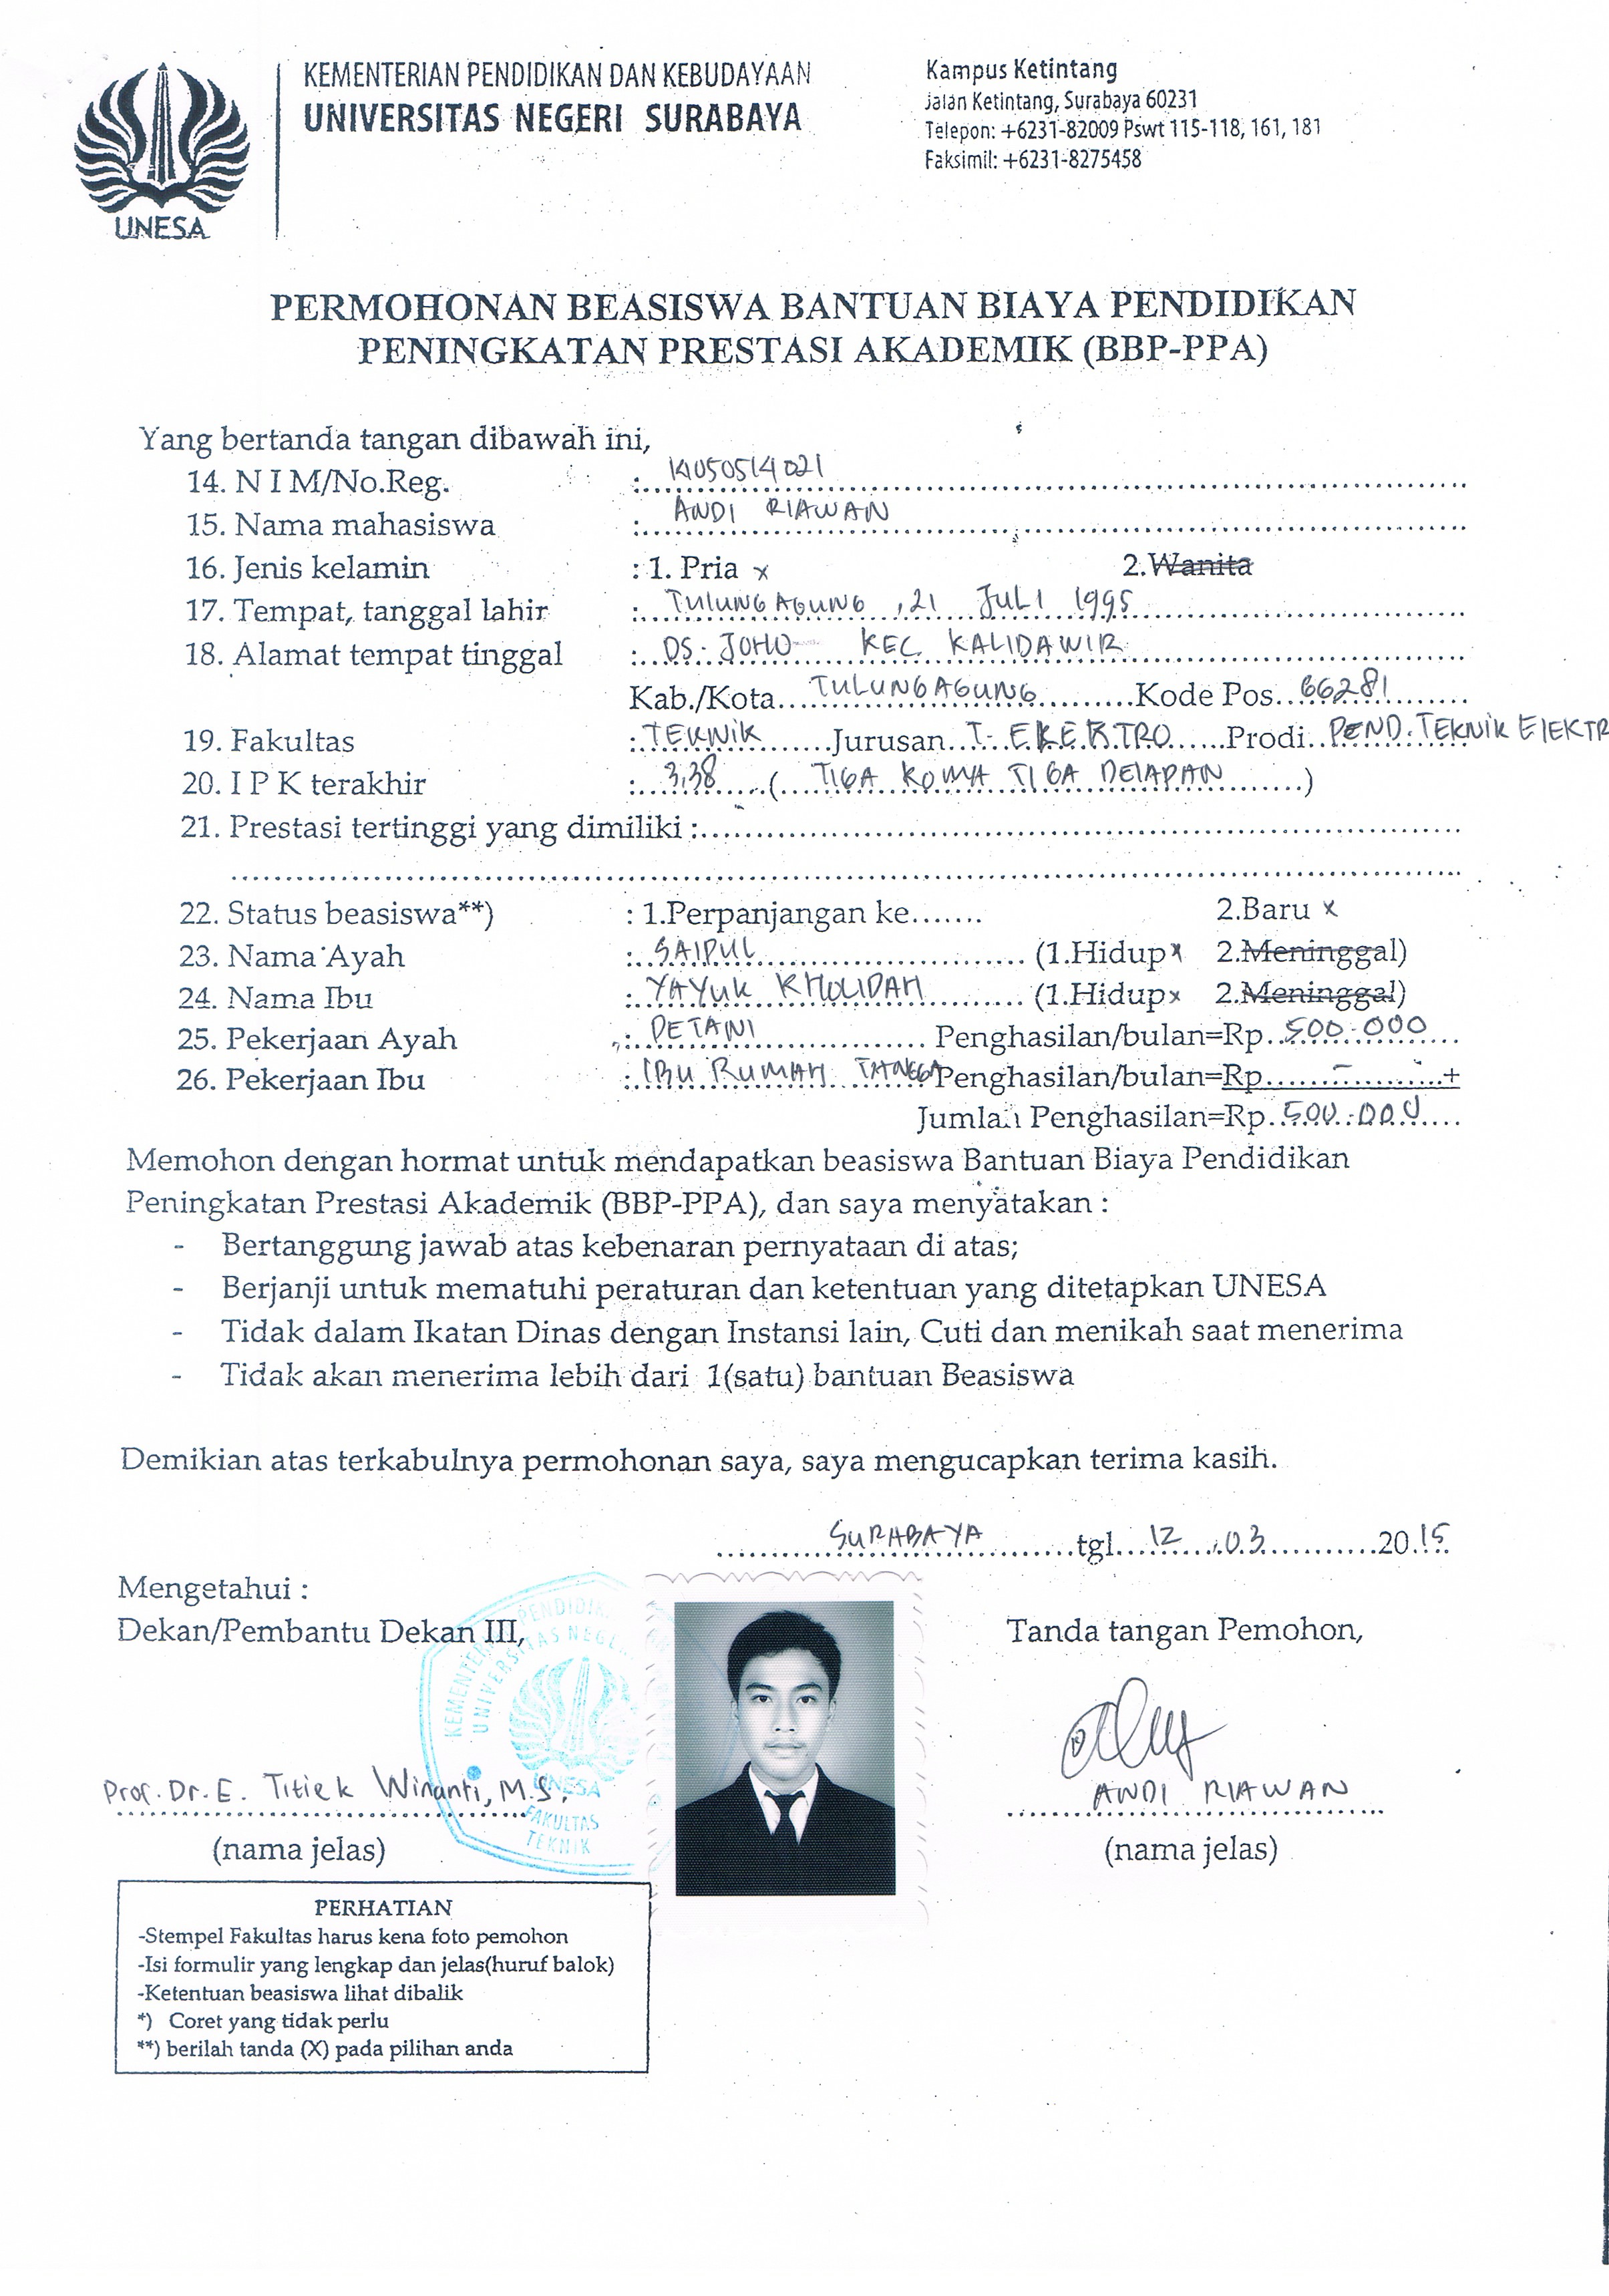 KEMENTERIAN PENDIDIKAN DAN KEBUDAYAAN
UNIVERSITAS NEGERI SURABAYA
UNESA
Kampus Ketintang
Jalan Ketintang, Surabaya 60231
Telepon: +6231-82009 Pswt 115-118, 161, 181
Faksimil: +6231-8275458
PERMOHONAN BEASISWA BANTUAN BIAYA PENDIDIKAN
PENINGKATAN PRESTASI AKADEMIK (BBP-PPA)
Yang bertanda tangan dibawah ini,
14. N I M/No.Reg. : 14050514021
15. Nama mahasiswa : ANDI RIAWAN
16. Jenis kelamin : 1. Pria x 2.Wanita
17. Tempat, tanggal lahir : TULUNGAGUNG , 21 JULI 1995
18. Alamat tempat tinggal : DS. JOHO KEC KALIDAWIR
Kab./Kota TULUNGAGUNG Kode Pos 66281
19. Fakultas : TEKNIK Jurusan T. Prodi PEND. TEKNIK ELEKTR
20. I P K terakhir : 3,38 ( TIGA KOMA TIGA DELAPAN )
21. Prestasi tertinggi yang dimiliki :
22. Status beasiswa**) : 1.Perpanjangan ke....... 2.Baru x
23. Nama Ayah : SAIPUL (1.Hidup x 2.Meninggal)
24. Nama Ibu : YAYUK KHOLIDAH (1.Hidup x 2.Meninggal)
25. Pekerjaan Ayah : PETANI Penghasilan/bulan=Rp 500.000
26. Pekerjaan Ibu : IBU RUMAH TANGGA Penghasilan/bulan=Rp - +
Jumlah Penghasilan=Rp 500.000
Memohon dengan hormat untuk mendapatkan beasiswa Bantuan Biaya Pendidikan
Peningkatan Prestasi Akademik (BBP-PPA), dan saya menyatakan :
- Bertanggung jawab atas kebenaran pernyataan di atas;
- Berjanji untuk mematuhi peraturan dan ketentuan yang ditetapkan UNESA
- Tidak dalam Ikatan Dinas dengan Instansi lain, Cuti dan menikah saat menerima
- Tidak akan menerima lebih dari 1(satu) bantuan Beasiswa
Demikian atas terkabulnya permohonan saya, saya mengucapkan terima kasih.
SURABAYA tgl. 12 , 03 2015
Mengetahui :
Dekan/Pembantu Dekan III,
Tanda tangan Pemohon,
UNESA
FAKULTAS
TEKNIK
Prof. Dr. E. Titiek Winanti, M.S.
ANDI RIAWAN
(nama jelas)
(nama jelas)
PERHATIAN
-Stempel Fakultas harus kena foto pemohon
-Isi formulir yang lengkap dan jelas(huruf balok)
-Ketentuan beasiswa lihat dibalik
*) Coret yang tidak perlu
**) berilah tanda (X) pada pilihan anda